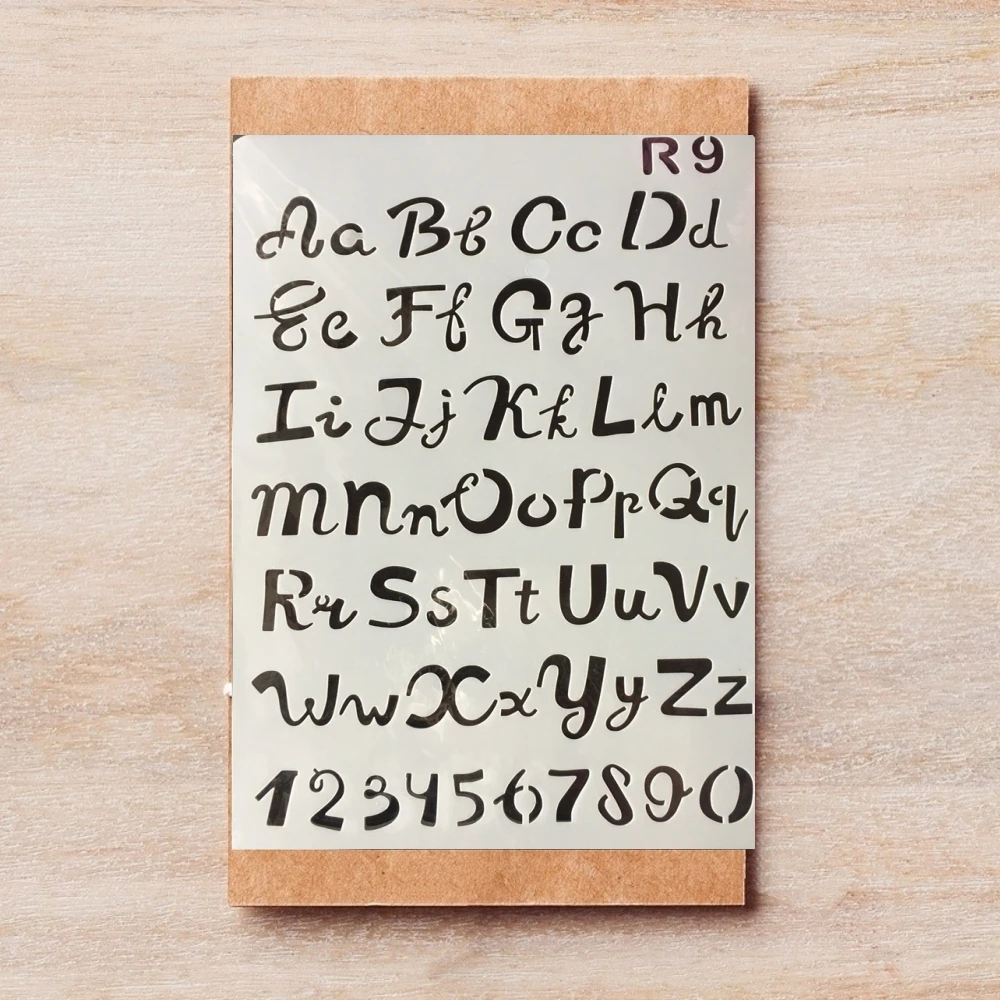 R 9
Aa Bb Cc Dd
Ee Ff Gg Hh
Ii Jj Kk Ll m
M Nn Oo Pp Qq
Rr Ss Tt Uu Vv
Ww Xx Yy Zz
1234567890